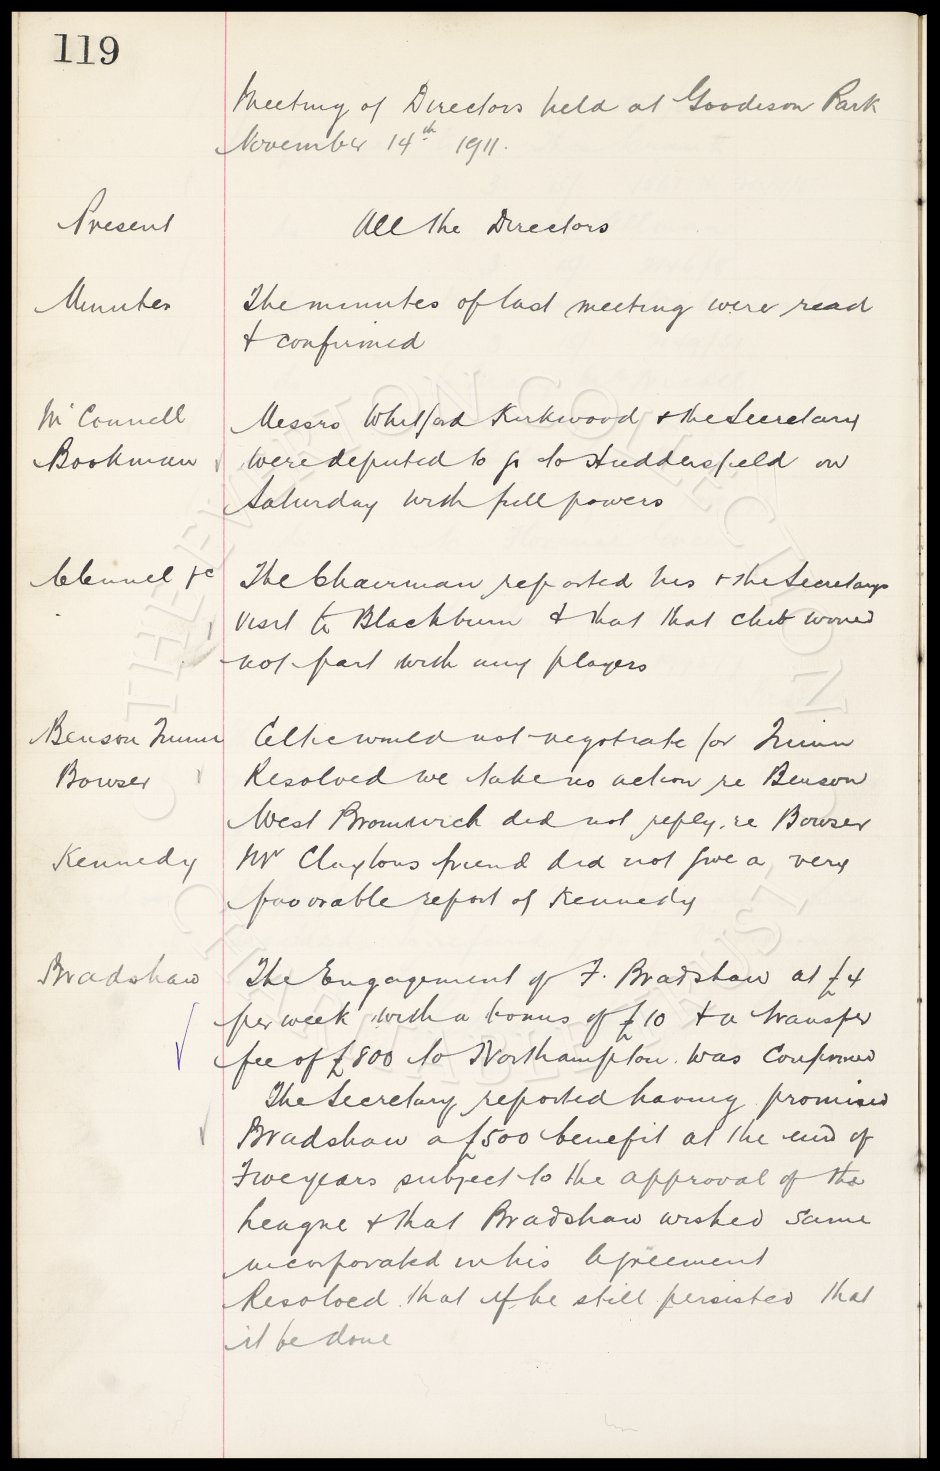 119
Meeting of Directors held at Goodison Park
November 14th 1911.
Present All the Directors
Minutes The minutes of last meeting were read
& confirmed
McConnell Messrs Whitford Kirkwood & the Secretary
Bookman were deputed to go to Huddersfield on
Saturday with full powers
Clennel &c The Chairman reported his & the Secretarys
visit to Blackburn & that that club would
not part with any players
Benson Quinn Celtic would not negotiate for Quinn
Bowser Resolved we take no action re Benson
West Bromwich did not reply re Bowser
Kennedy Mr Claytons friend did not give a very
favorable report of Kennedy
Bradshaw The Engagement of F. Bradshaw at £4
per week with a bonus of £10 & a transfer
fee of £800 to Northampton was confirmed
The Secretary reported having promised
Bradshaw a £500 benefit at the end of
Five years subject to the approval of the
League & that Bradshaw wished same
incorporated in his Agreement
Resolved that if he still persisted that
it be done
THE EVERTON COLLECTION
CHARITABLE TRUST